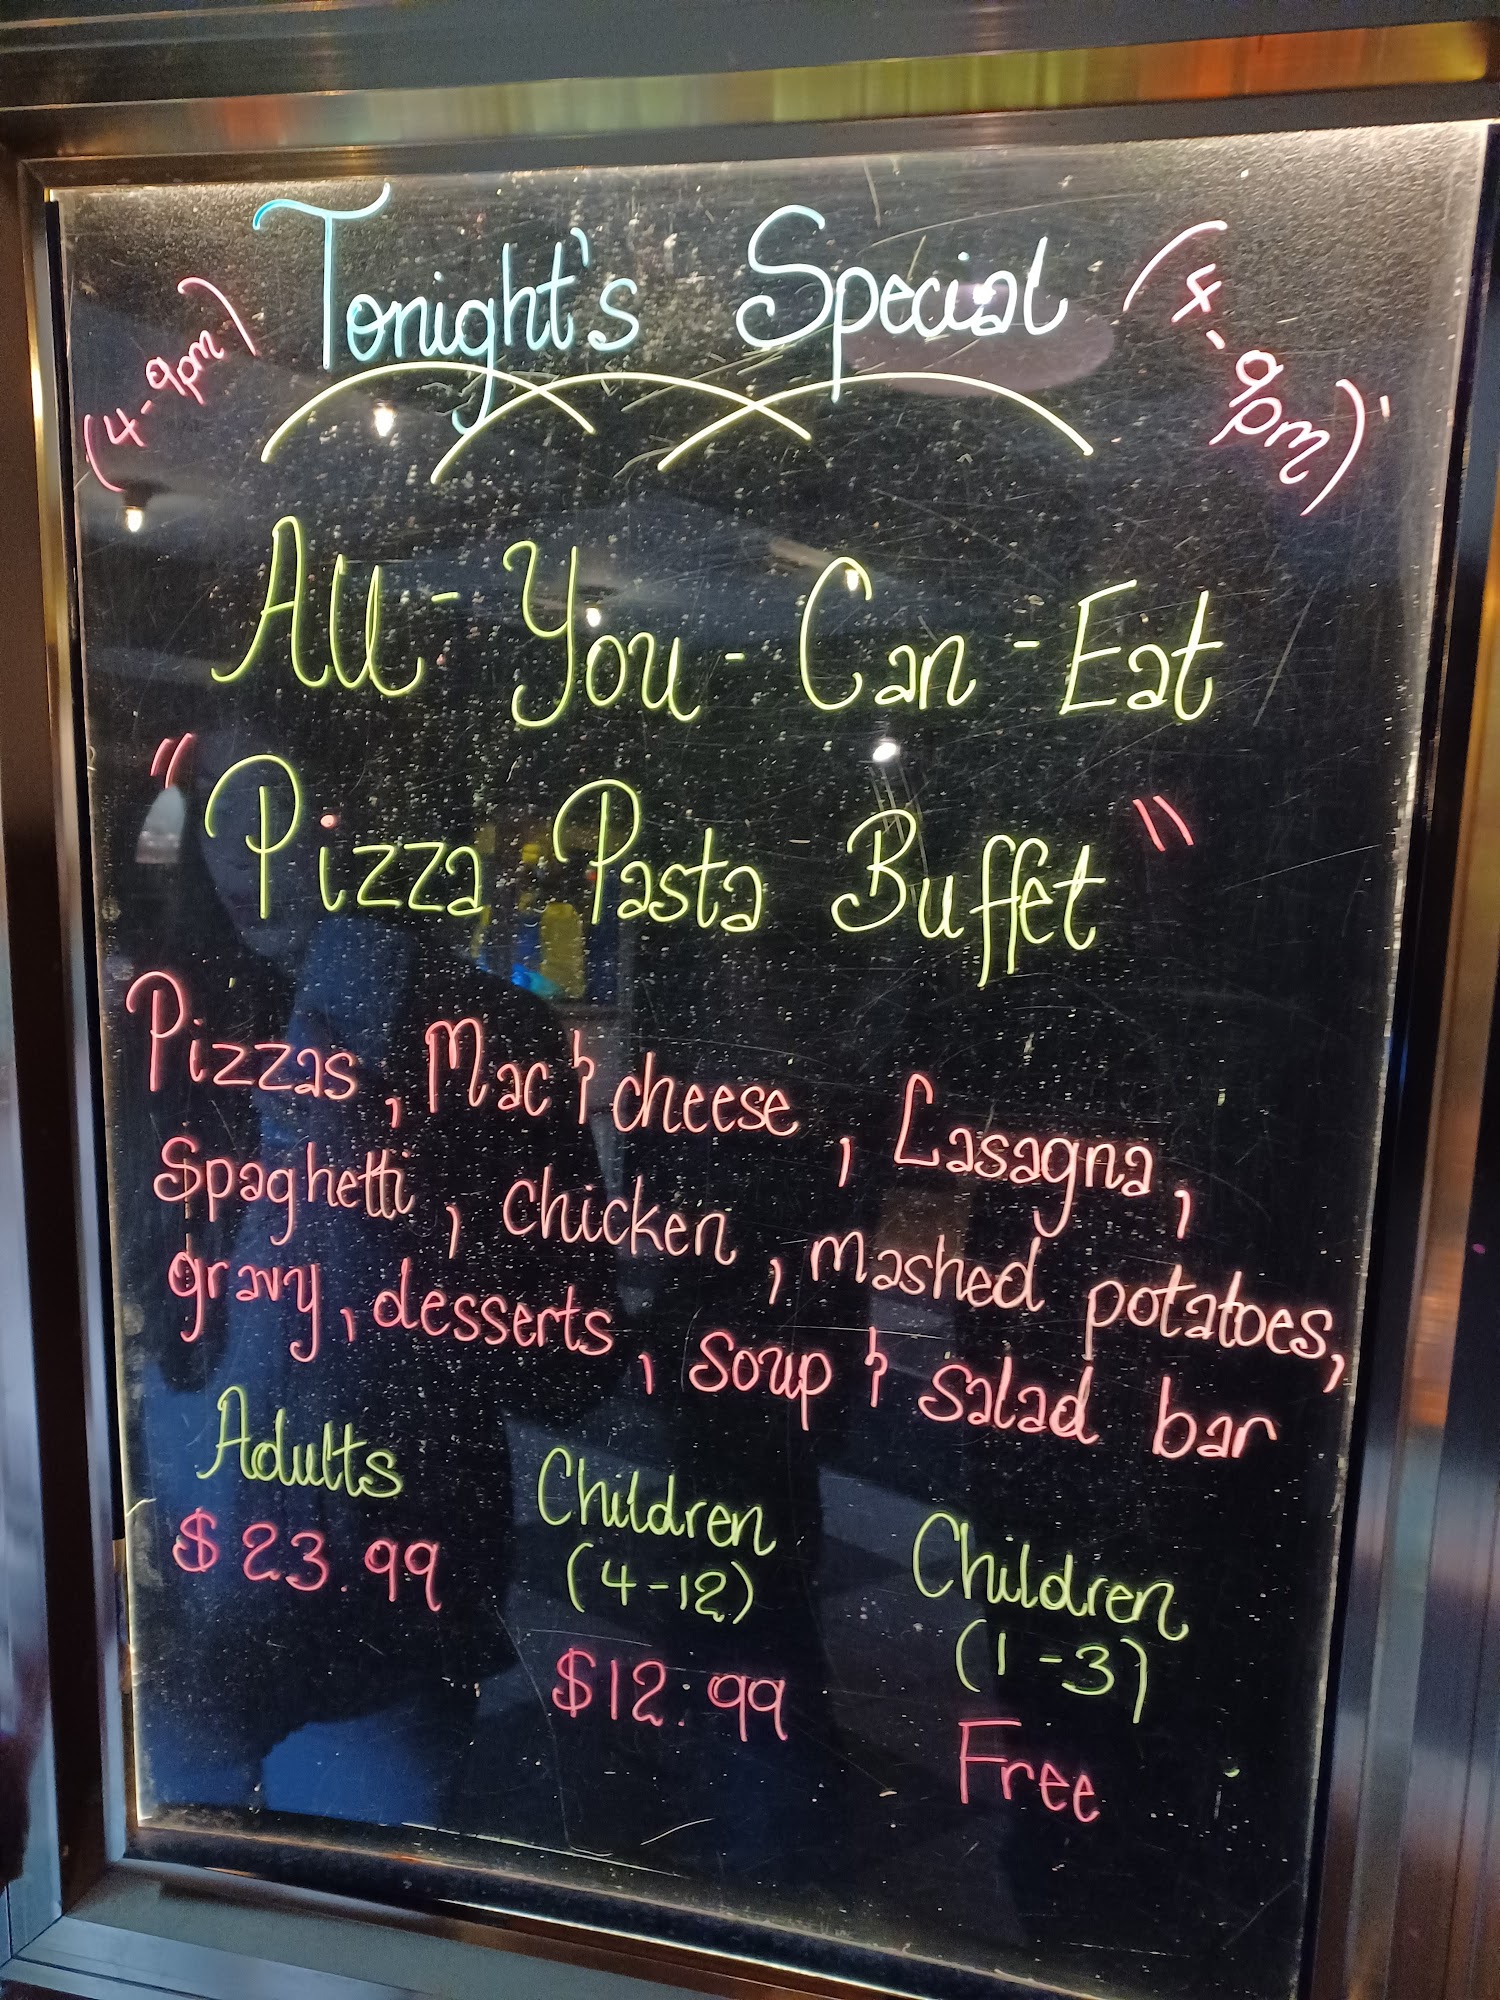 Tonight's Special
(4-9pm)
(4-9pm)
All-You-Can-Eat
"Pizza Pasta Buffet"
Pizzas, Mac & cheese, Lasagna,
Spaghetti, chicken, mashed potatoes,
gravy, desserts, soup & salad bar
Adults
$23.99
Children
(4-12)
$12.99
Children
(1-3)
Free